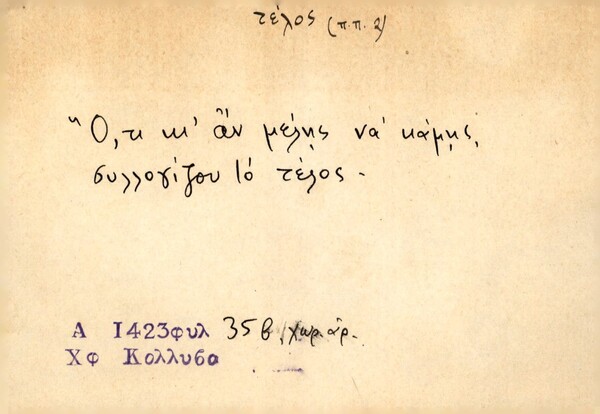 τέλος (π.π. 2)
Ὅ,τι κι' ἂν μέλῃς νά κάμῃς,
συλλογίζου τό τέλος.
Α 1423φυλ 35β, χωρ. ἀρ.
Χφ Κολλυβα